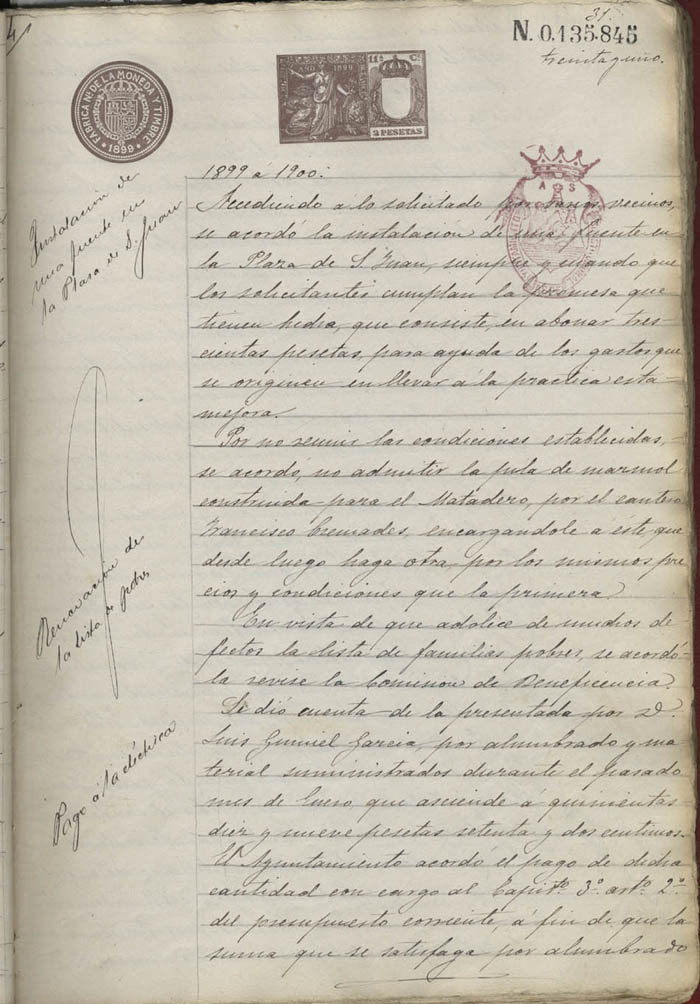 31.
N. 0.135.845
treinta y uno.
FÁBRICA Nl. DE LA MONEDA Y TIMBRE
1899
11ª C.
2 PESETAS
1899 á 1900.
Instalación de
una fuente en
la Plaza de S. Juan
Accediendo á lo solicitado por varios vecinos,
se acordó la instalacion de una fuente en
la Plaza de S. Juan, siempre y cuando que
los solicitantes cumplan la promesa que
tienen hecha, que consiste, en abonar tres-
cientas pesetas, para ayuda de los gastos que
se originen en llevar á la practica esta
mejora.
Por no reunir las condiciones establecidas,
se acordó, no admitir la pila de marmol
construida para el Matadero, por el cantero
Francisco Cremades, encargandole á éste, que
desde luego haga otra, por los mismos pre
cios y condiciones que la primera.
Renovacion de
la lista de pobres
En vista de que adolece de muchos de
fectos la lista de familias pobres, se acordó
la revise la Comision de Beneficencia.
Pago á la eléctrica
Se dió cuenta de la presentada por D.
Luis Gumiel Garcia, por alumbrado y ma
terial suministrados durante el pasado
mes de Enero, que asciende á quinientas
diez y nueve pesetas setenta y dos centimos.
El Ayuntamiento acordó el pago de dicha
cantidad con cargo al Capitº. 3º. artº. 2º.
del presupuesto corriente, á fin de que la
suma que se satisfaga por alumbrado